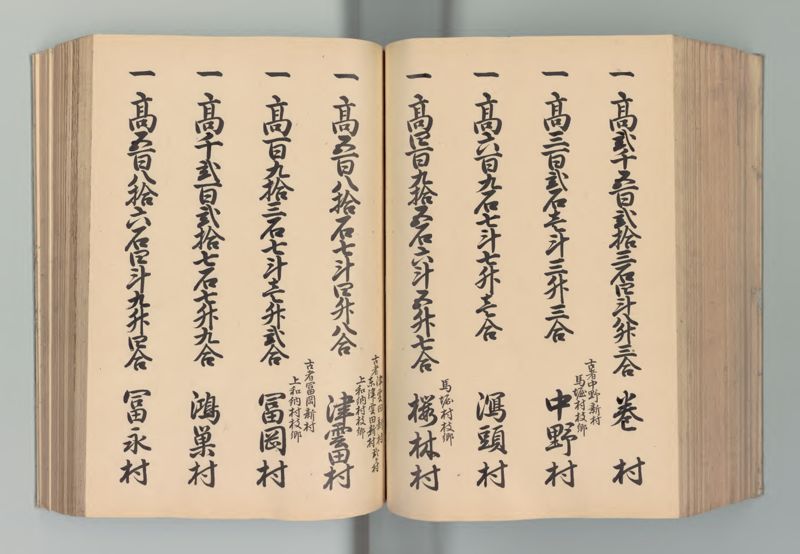 一 高弐千五百弐拾三石四斗八升三合 巻村
古者中野新村
馬堀村枝郷
一 高三百弐石壱斗三升三合 中野村
一 高六百九石七斗七升壱合 潟頭村
馬堀村枝郷
一 高四百九拾五石六斗五升七合 桜林村
古者津雲田新村
東津雲田新村弐ヶ村
上和納村枝郷
一 高五百八拾石七斗四升八合 津雲田村
古者冨岡新村
上和納村枝郷
一 高百九拾三石七斗壱升弐合 冨岡村
一 高千弐百弐拾七石七升九合 鴻巣村
一 高五百八拾六石四斗九升四合 冨永村